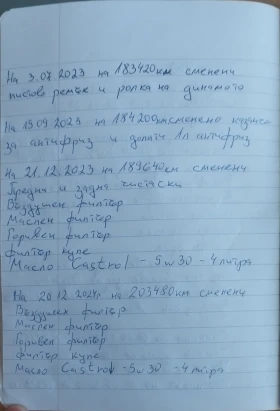 На 3.07.2023 на 183420км сменени
писов ремък и ролка на динамота
На 19.09.2023 на 184200км сменено казанче
за антифриз и долят 1л антифриз
На 21.12.2023 на 189640км сменени
Предни и задна чистачки
Въздушен филтър
Маслен филтър
Горивен филтър
филтър купе
Масло Castrol - 5w30 - 4 литра
На 20.12.2024г на 203480км сменени
Въздушен филтър
Маслен филтър
Горивен филтър
филтър купе
Масло Castrol - 5w30 - 4 литра